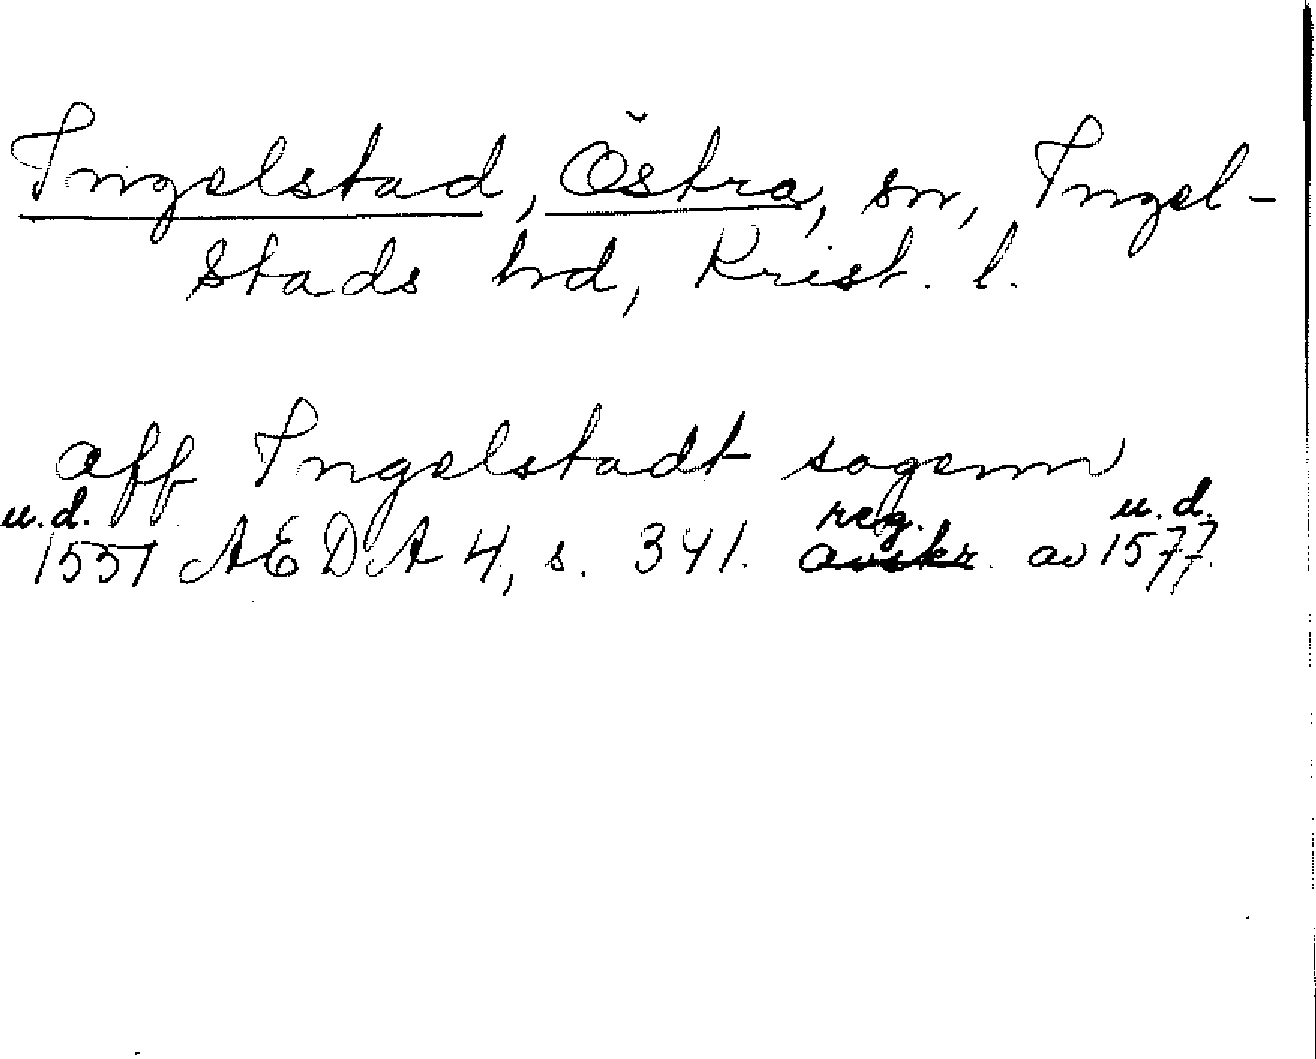 Ingelstad, Östra, sn, Ingel-
stads hd, Krist. l.
aff Ingelstadt sogenn
u.d. reg. u.d.
1551 AEDA 4, s. 341. avskr. av 1577.